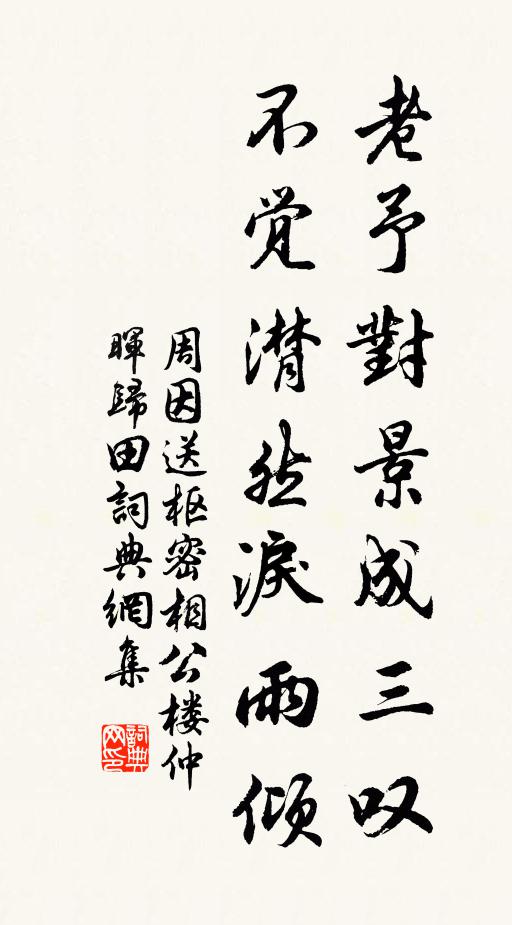 老予對景成三叹
不觉潸然淚雨倾
周因送枢密相公楼仲
暉歸田詞典網集
詞典网印